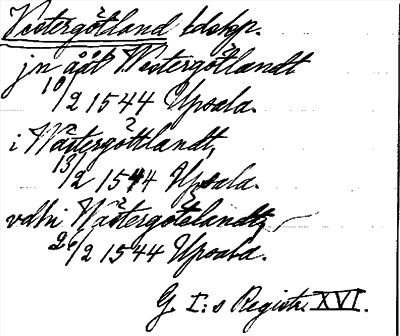 Vestergötland ldskp.
jn ååt Westergötlandt
10/2 1544 Upsala.
i Wästergöttlandt,
13/2 1544 Upsala.
vdhi Wästergötelandtz
26/2 1544 Upsala.
G. I:s Registr. XVI.